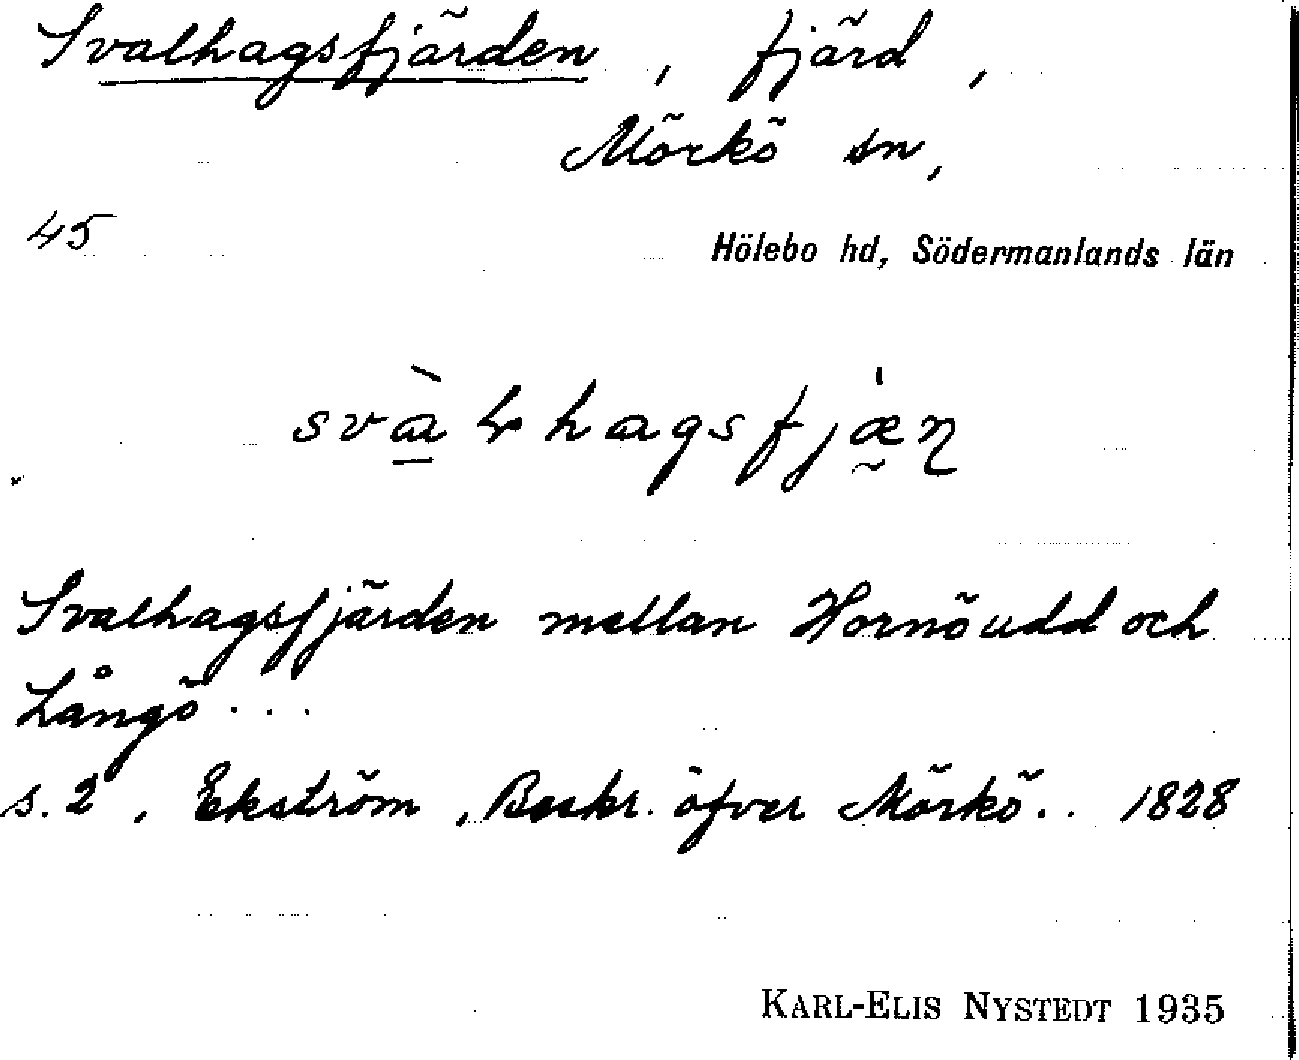 Svalhagsfjärden, fjärd,
Mörkö sn,
45
Hölebo hd, Södermanlands län
Svalhagsfjärden mellan Hornöudd och
Långö...
s. 2, Ekström, Beskr. öfver Mörkö.. 1828
KARL-ELIS NYSTEDT 1935